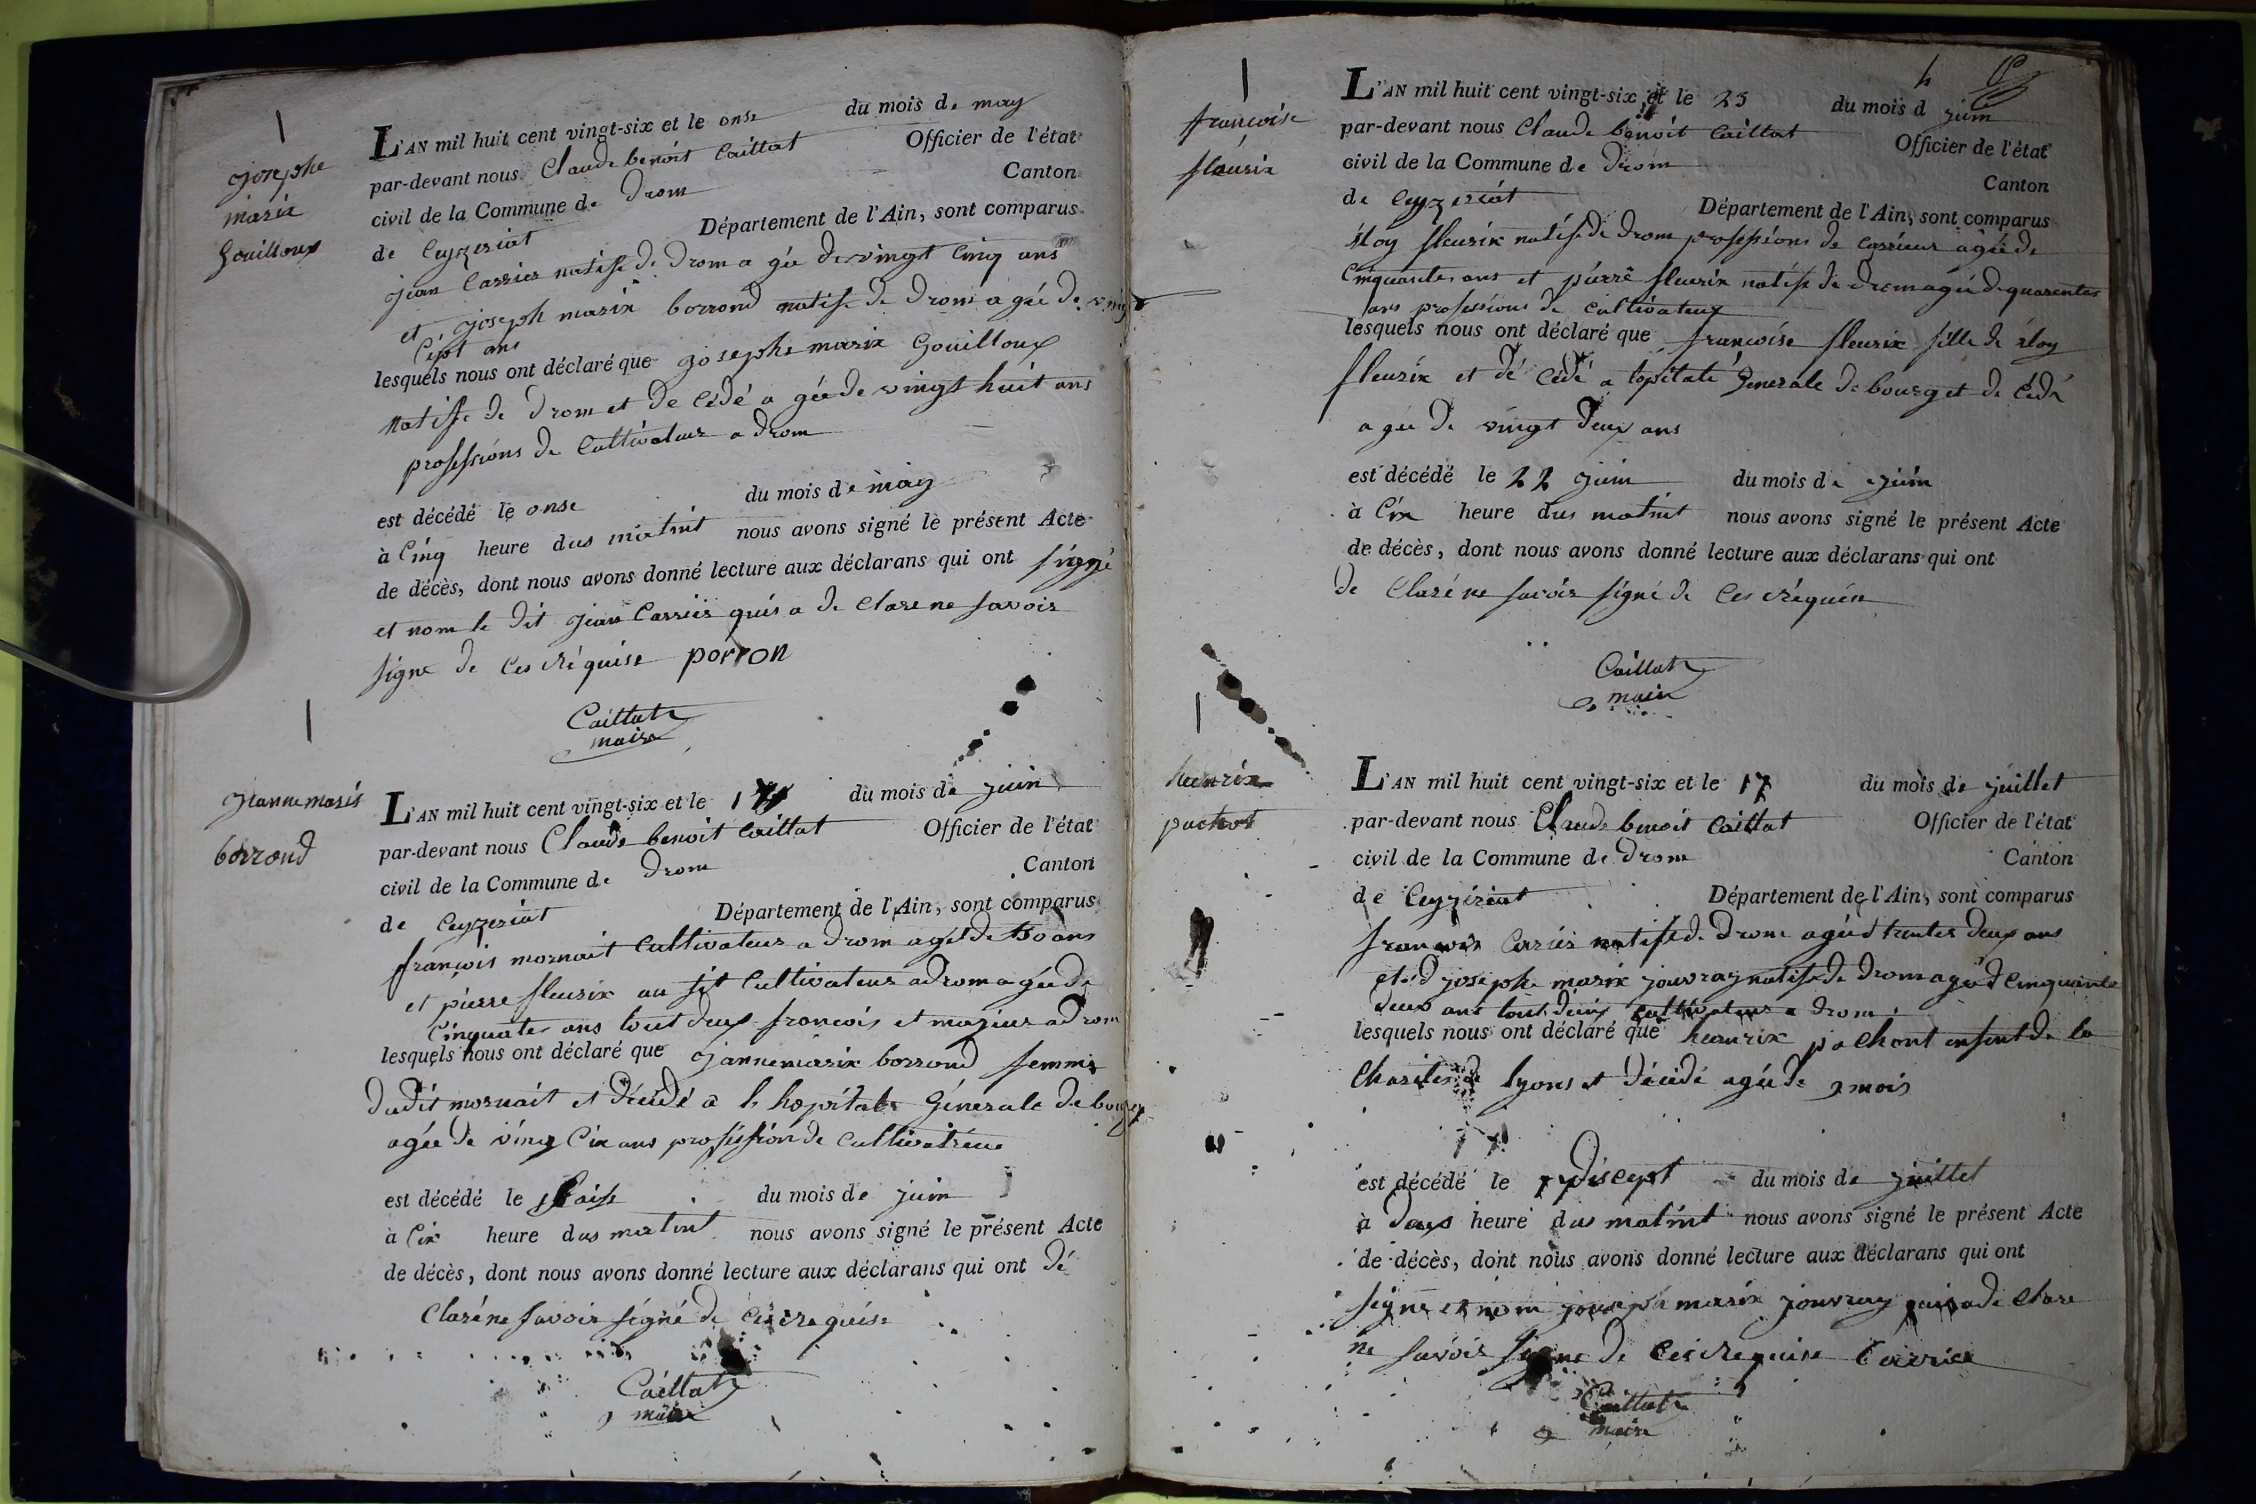 1
josephe
marie
Gouilloux
L'AN mil huit cent vingt-six et le onse du mois de may
par-devant nous Claude benoit Caillat Officier de l'état
civil de la Commune de Drom Canton
de Ceyzeriat Département de l'Ain, sont comparus
jean Carrier natife de Drom a gée de vingt Cinq ans
et joseph marie borrond natife de Drom a gée de ving
Cépt ans
lesquels nous ont déclaré que josephe marie Gouilloux
natiffe de Drom et de Cédé a gée de vingt huit ans
professions de Cultivateur a drom
est décédé le onse du mois de may
à Cinq heure dus matint nous avons signé le présent Acte
de décès, dont nous avons donné lecture aux déclarans qui ont signé
et nom le dit jean Carrier quis a de Clare ne savoir
signe de Ces réquise porron
Caillat
maire
1
jeanne marie
borrond
L'AN mil huit cent vingt-six et le du mois de juin
par-devant nous Claude benoit Caillat Officier de l'état
civil de la Commune de Drom Canton
de Ceyzeriat Département de l'Ain, sont comparus
françois mornait Cultivateur a drom agé de ans
et pierre fleurie au sit Cultivateur a drom a gée de
Cinquate ans tout deux francois et majeur a Drom
lesquels nous ont déclaré que jannemarie borrond femme
dudit mornait et Décidé a le hopitale Génerale de bourg
agée de ving Cix ans profession de Cultivatrieue
est décédé le du mois de juin
à Cix heure dus matint nous avons signé le présent Acte
de décès, dont nous avons donné lecture aux déclarans qui ont dé
Claré ne savoir signé de Ces requise
Caillat
maire
4
1
francoise
fleurie
L'AN mil huit cent vingt-six et le 23 du mois d juin
par-devant nous Claude benoit Caillat Officier de l'état
civil de la Commune de Drom Canton
de Ceyzeriat Département de l'Ain, sont comparus
éloy fleurie natife de drom professions de Carrieur agée de
Cinquante ans et piérre fleurie natife de drom agée de quarente
ans professions de Cultivateux
lesquels nous ont déclaré que francoise fleurie fille de éloy
fleurie et dé Cédé a lopitale Generale de bourg et de Cédé
a gée de vingt deux ans
est décédé le 22 juin du mois de juin
à Cix heure dus matint nous avons signé le présent Acte
de décès, dont nous avons donné lecture aux déclarans qui ont
de Claré ne savoir signé de Ces réquén
Caillat
maire
1
heunrie
pachot
L'AN mil huit cent vingt-six et le 17 du mois de juillet
par-devant nous Claude benoit Caillat Officier de l'état
civil de la Commune de Drom Canton
de Ceyziriat Département de l'Ain, sont comparus
françois Cariér natife de Drom agée d trentes deux ans
et joseph marie jouvray natife de Drom agé d Cinquante
deux ans tout deux Cultivateur a drom
lesquels nous ont déclaré que heunrie pachont enfent de la
Charite de lyons et décidé agée de 9 mois
est décédé le discept du mois de juillet
à Deux heure dus matint nous avons signé le présent Acte
de décès, dont nous avons donné lecture aux déclarans qui ont
signe et nom joseph marie jouvray quis a de Clare
ne savoir signe de Ces requise Carrier
Caillat
maire